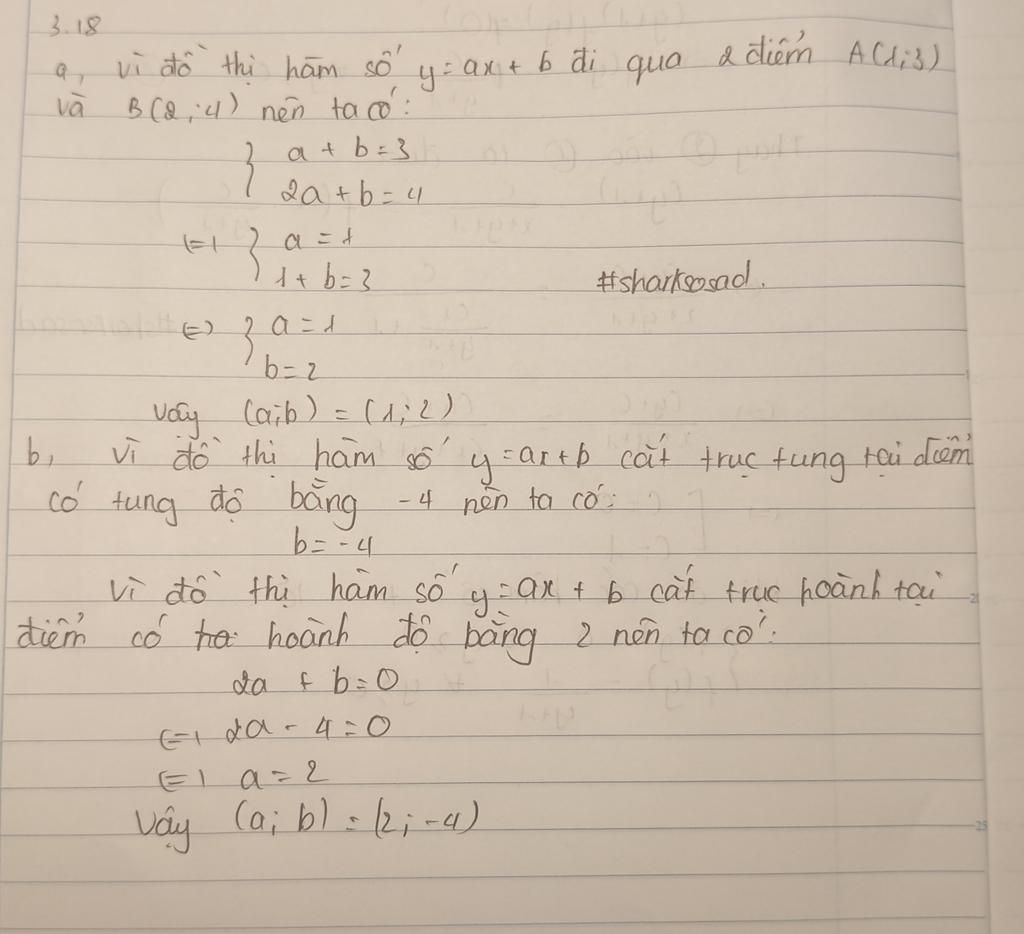 3.18
a, vì đồ thị hàm số y=ax+b đi qua 2 điểm A(1;3)
và B(2;4) nên ta có:
{ a + b = 3
2a + b = 4
<=> { a = 1
1 + b = 3
#sharksosad.
<=> { a = 1
b = 2
Vậy (a;b) = (1;2)
b, Vì đồ thị hàm số y=ax+b cắt trục tung tại điểm
có tung độ bằng -4 nên ta có:
b = -4
Vì đồ thị hàm số y=ax + b cắt trục hoành tại
điểm có hoành độ bằng 2 nên ta có:
2a + b = 0
<=> 2a - 4 = 0
<=> a = 2
Vậy (a; b) = (2; -4)
25